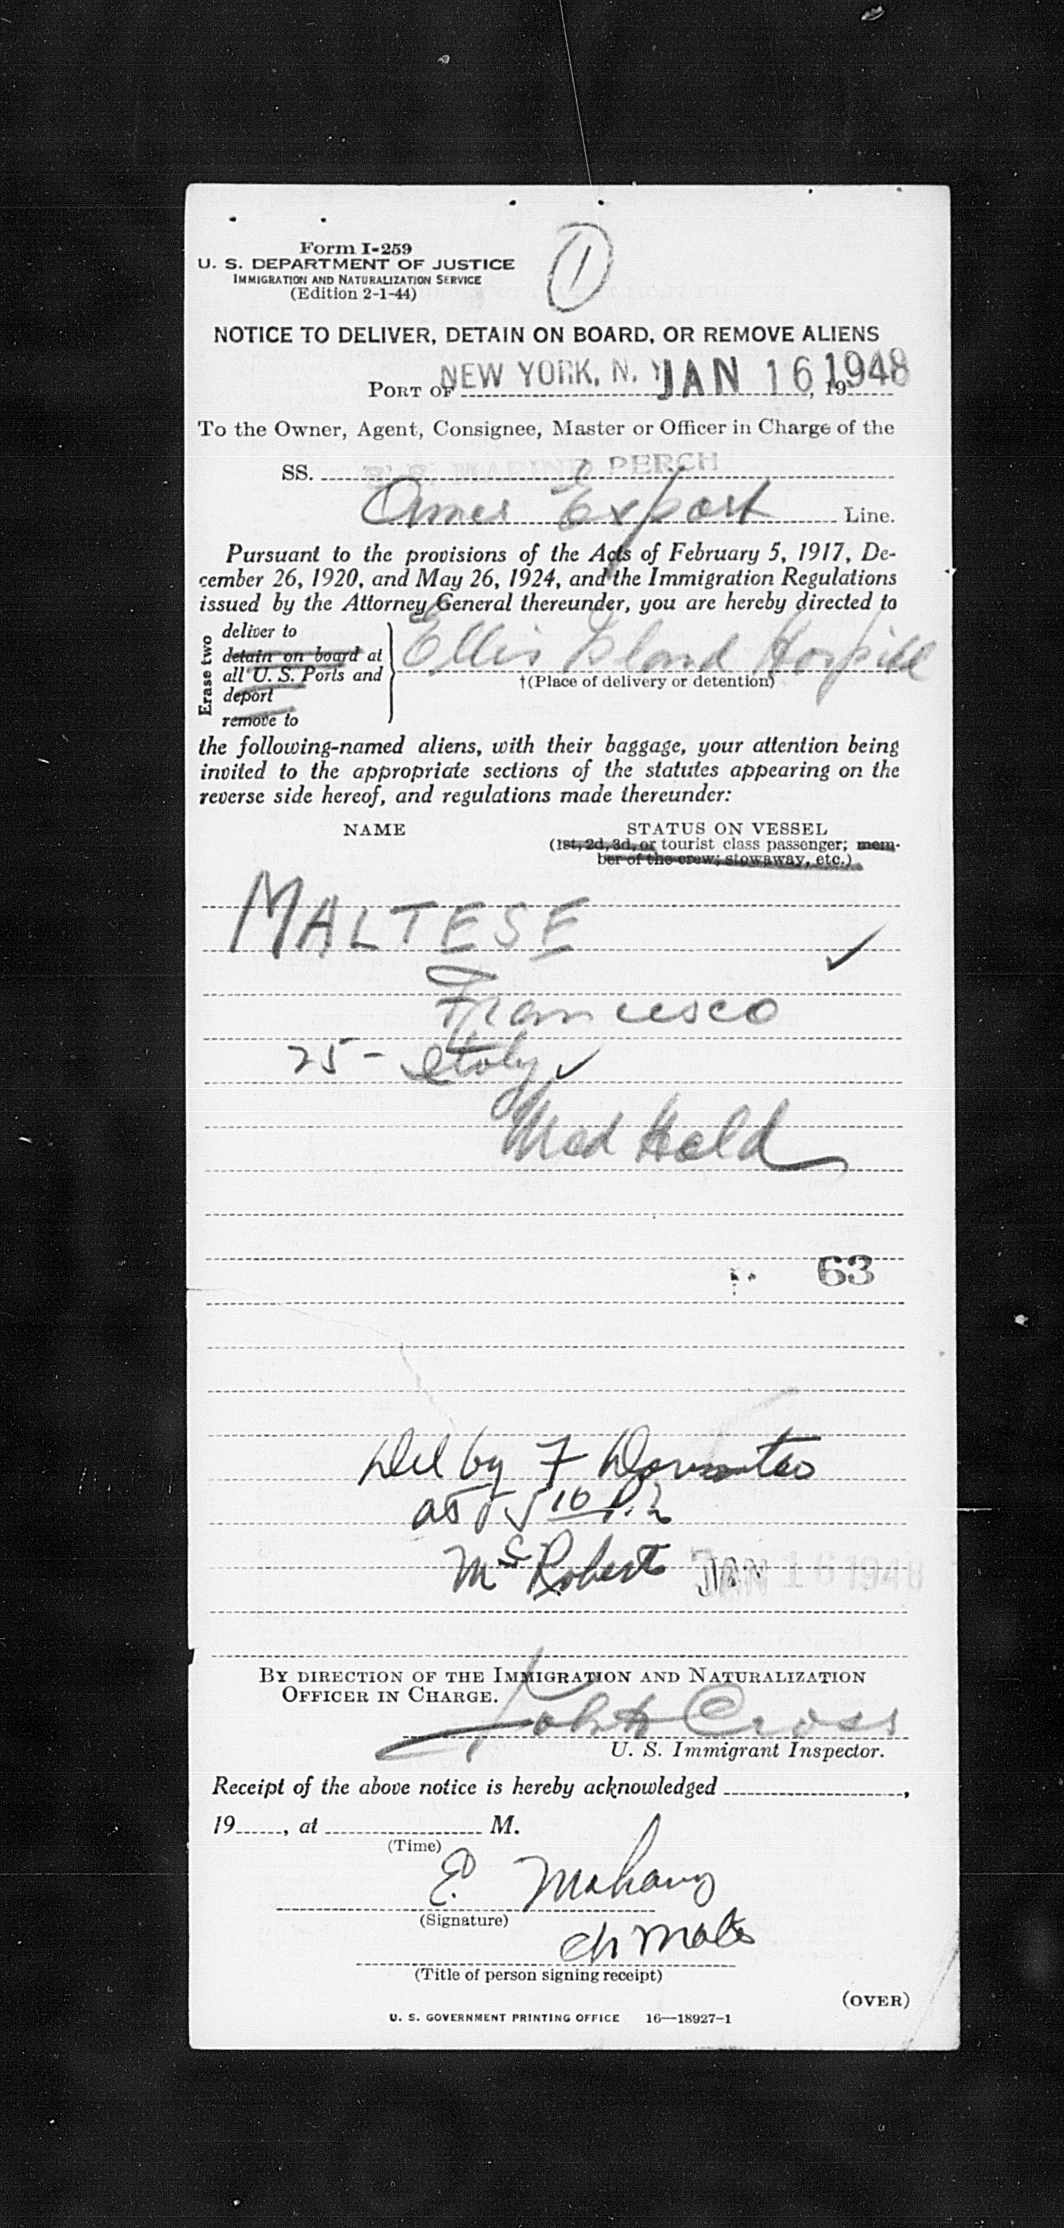 Form I-259
U. S. DEPARTMENT OF JUSTICE
IMMIGRATION AND NATURALIZATION SERVICE
(Edition 2-1-44)
1
NOTICE TO DELIVER, DETAIN ON BOARD, OR REMOVE ALIENS
PORT OF NEW YORK, N. Y. JAN 16 1948, 19
To the Owner, Agent, Consignee, Master or Officer in Charge of the
SS. MARINE PERCH
Amer Export Line.
Pursuant to the provisions of the Acts of February 5, 1917, De-
cember 26, 1920, and May 26, 1924, and the Immigration Regulations
issued by the Attorney General thereunder, you are hereby directed to
Erase two
deliver to
detain on board at
all U. S. Ports and
deport
remove to
Ellis Island Hospital
†(Place of delivery or detention)
the following-named aliens, with their baggage, your attention being
invited to the appropriate sections of the statutes appearing on the
reverse side hereof, and regulations made thereunder:
NAME STATUS ON VESSEL
(1st, 2d, 3d, or tourist class passenger; mem-
ber of the crew; stowaway, etc.)
MALTESE ✓
Francesco
25 - Italy ✓
Med Held
63
Del by F
at 5 10 P.
McRoberts JAN 16 1948
BY DIRECTION OF THE IMMIGRATION AND NATURALIZATION
OFFICER IN CHARGE.
Cross
U. S. Immigrant Inspector.
Receipt of the above notice is hereby acknowledged ,
19 , at M.
(Time)
E.
(Signature)
Ch Mate
(Title of person signing receipt)
(OVER)
U. S. GOVERNMENT PRINTING OFFICE 16—18927-1